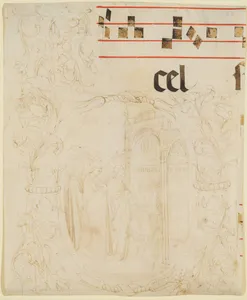 cel f